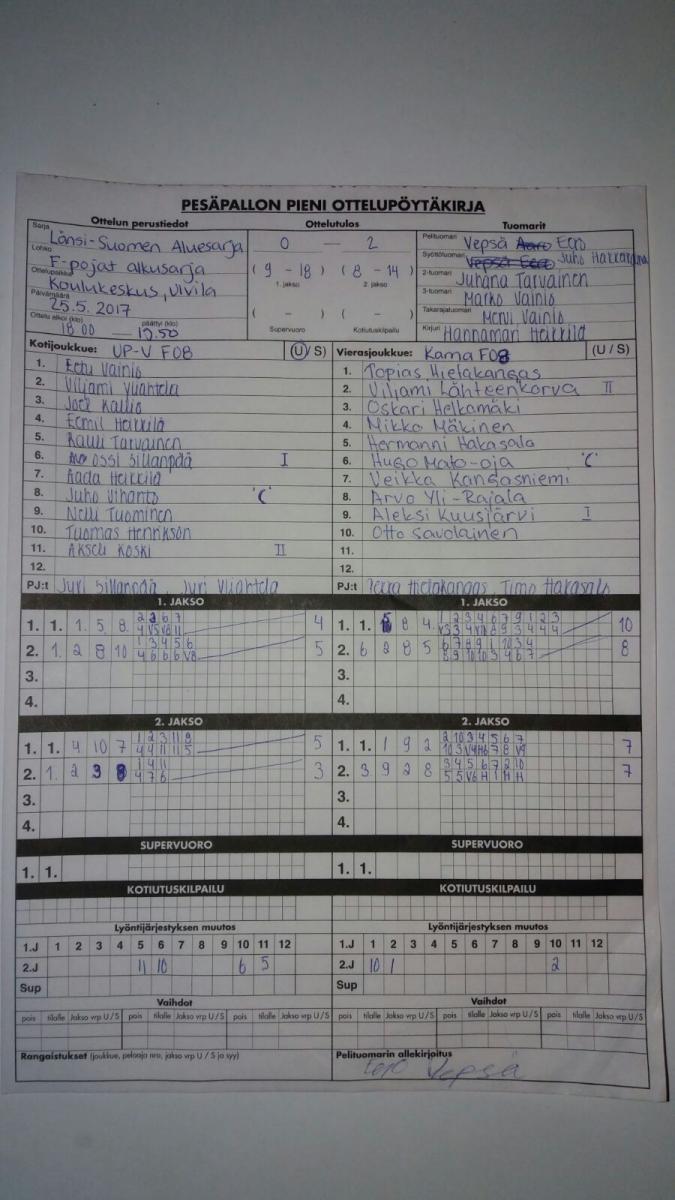 PESÄPALLON PIENI OTTELUPÖYTÄKIRJA
Ottelun perustiedot Ottelutulos Tuomarit
Sarja Länsi-Suomen Aluesarja
Lohko F-pojat alkusarja
Ottelupaikka Koulukeskus, Ulvila
Päivämäärä 25.5. 2017
Ottelu alkoi (klo) 18.00 — päättyi (klo) 19.50
0 — 2
(9 - 18) (8 - 14)
1. jakso 2. jakso
( - ) ( - )
Supervuoro Kotiutuskilpailu
Pelituomari Vepsä Aaro Eero
Syöttötuomari Vepsä Eero Juho Hakkarainen
2-tuomari Juhana Tarvainen
3-tuomari Marko Vainio
Takarajatuomari Mervi Vainio
Kirjuri Hannamari Heikkilä
Kotijoukkue: UP-V F08 (U/S)
1. Eetu Vainio
2. Viljami Yliahtela
3. Joel Kallio
4. Eemil Heikkilä
5. Rauli Tarvainen
6. Ossi Sillanpää I
7. Aada Heikkilä
8. Juho Vihanto "C"
9. Nelli Tuominen
10. Tuomas Henrikson
11. Akseli Koski II
12.
PJ:t Juri Sillanpää Juri Yliahtela
Vierasjoukkue: Kama F08 (U/S)
1. Topias Hietakangas
2. Viljami Lähteenkorva II
3. Oskari Helkamäki
4. Mikko Mäkinen
5. Hermanni Hakasalo
6. Hugo Mato-oja "C"
7. Veikka Kangasniemi
8. Arvo Yli-Rajala
9. Aleksi Kuusjärvi I
10. Otto Savolainen
11.
12.
PJ:t Hietakangas Timo Hakasalo
1. JAKSO 1. JAKSO
1. 1. 1. 5. 8. 4
2. 1. 2 8 10 5
3.
4.
1. 1. 8 4. 10
2. 6 2 8 5 8
3.
4.
2. JAKSO 2. JAKSO
1. 1. 4 10 7 5
2. 1. 2 3 8 3
3.
4.
1. 1. 1 9 2 7
2. 3 9 2 8 7
3.
4.
SUPERVUORO SUPERVUORO
1. 1. 1. 1.
KOTIUTUSKILPAILU KOTIUTUSKILPAILU
Lyöntijärjestyksen muutos Lyöntijärjestyksen muutos
1.J 1 2 3 4 5 6 7 8 9 10 11 12
2.J 11 10 6 5
Sup
1.J 1 2 3 4 5 6 7 8 9 10 11 12
2.J 10 1 2
Sup
Vaihdot Vaihdot
pois tilalle Jakso vrp U/S pois tilalle Jakso vrp U/S pois tilalle Jakso vrp U/S
pois tilalle Jakso vrp U/S pois tilalle Jakso vrp U/S pois tilalle Jakso vrp U/S
Rangaistukset (joukkue, pelaaja nro, jakso vrp U / S ja syy)
Pelituomarin allekirjoitus
Eero Vepsä